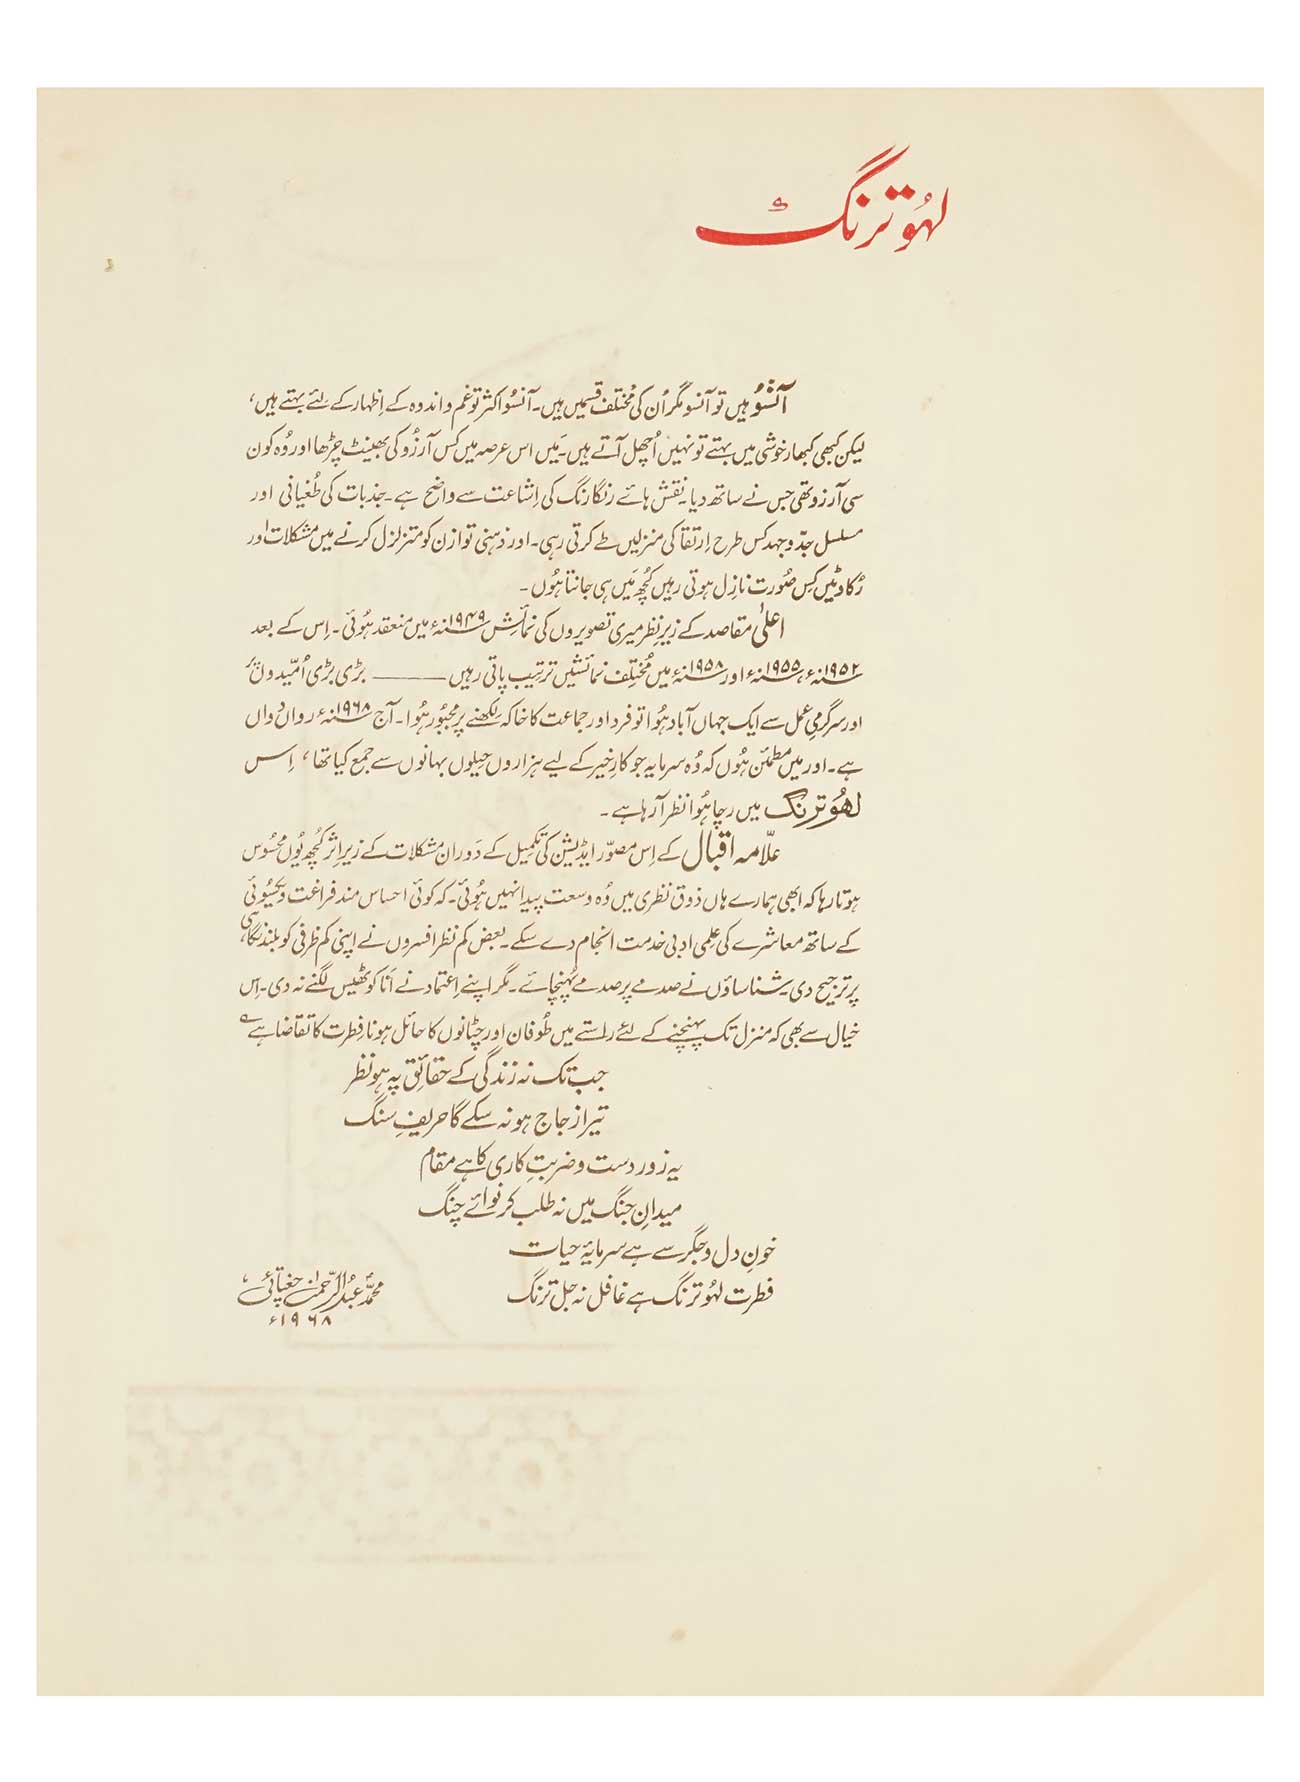 لہُو ترنگ
آنسُو ہیں تو آنسو مگر اُن کی مُختلف قسمیں ہیں۔ آنسُو اکثر تو غم و اندوہ کے اِظہار کے لئے بہتے ہیں،
لیکن کبھی کبھار خوشی میں بہتے تو نہیں اُچھل آتے ہیں۔ مَیں اس عرصہ میں کس آرزُو کی بھینٹ چڑھا اور وُہ کون
سی آرزو تھی جس نے ساتھ دیا۔ نقش ہائے رنگا رنگ کی اِشاعت سے واضح ہے۔ جذبات کی طُغیانی اور
مسلسل جدّوجہد کس طرح اِرتقا کی منزلیں طے کرتی رہی۔ اور ذہنی توازن کو متزلزل کرنے میں مشکلات اور
رُکاوٹیں کِس صُورت نازِل ہوتی رہیں کُچھ مَیں ہی جانتا ہُوں۔
اعلیٰ مقاصد کے زیرِ نظر میری تصویروں کی نمائش ۱۹۴۹ء میں منعقد ہُوئی۔ اِس کے بعد
۱۹۵۲ء، ۱۹۵۵ء اور ۱۹۵۸ء میں مُختلِف نمائشیں ترتیب پاتی رہیں ——— بڑی بڑی اُمّیدوں پر
اور سرگرمیِ عمل سے ایک جہاں آباد ہُوا تو فرد اور جماعت کا خاکہ لِکھنے پر مجبُور ہُوا۔ آج ۱۹۶۸ء رواں دواں
ہے۔ اور میں مطمئن ہُوں کہ وُہ سرمایہ جو کارِ خیر کے لیے ہزاروں حِیلوں بہانوں سے جمع کیا تھا، اِس
لہُو ترنگ میں رچا ہُوا نظر آ رہا ہے۔
علّامہ اقبال کے اِس مصوّر ایڈیشن کی تکمِیل کے دَوران مشکلات کے زیرِ اثر کُچھ یُوں محسُوس
ہوتا رہا کہ ابھی ہمارے ہاں ذوقِ نظری میں وُہ وسعت پیدا نہیں ہُوئی۔ کہ کوئی احساس مند فراغت و یکسُوئی
کے ساتھ معاشرے کی عِلمی ادبی خدمت انجام دے سکے۔ بعض کم نظر افسروں نے اپنی کم ظرفی کو بلند نگاہی
پر ترجیح دی۔ شناساؤں نے صدمے پر صدمے پُہنچائے۔ مگر اپنے اِعتماد نے اَنا کو ٹھیس لگنے نہ دی۔ اِس
خیال سے بھی کہ منزل تک پہنچنے کے لئے راستے میں طُوفان اور چٹانوں کا حائل ہونا فِطرت کا تقاضا ہے
جب تک نہ زندگی کے حقائق پہ ہو نظر
تیرا زجاج ہو نہ سکے گا حریفِ سنگ
یہ زورِ دست و ضربتِ کاری کا ہے مقام
میدانِ جنگ میں نہ طلب کر نوائے چنگ
خونِ دل و جگر سے ہے سرمایۂ حیات
فطرت لہُو ترنگ ہے غافل نہ جل ترنگ
محمّد عبدُالرّحمٰن چغتائی
۱۹۶۸ء